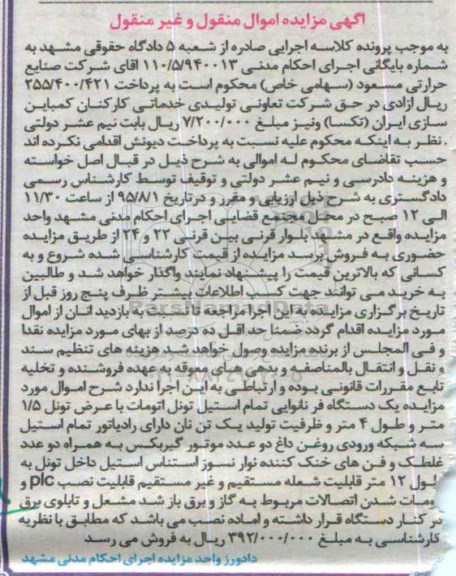 اگهی مزایده اموال منقول و غیر منقول
به موجب پرونده کلاسه اجرایی صادره از شعبه ۵ دادگاه حقوقی مشهد به
شماره بایگانی اجرای احکام مدنی ۱۱۰/۵/۹۴۰۰۱۳ اقای شرکت صنایع
حرارتی مسعود (سهامی خاص) محکوم است به پرداخت ۲۵۵/۴۰۰/۴۲۱
ریال ازادی در حق شرکت تعاونی تولیدی خدماتی کارکنان کمباین
سازی ایران (تکسا) ونیز مبلغ ۷/۲۰۰/۰۰۰ ریال بابت نیم عشر دولتی
. نظر به اینکه محکوم علیه نسبت به پرداخت دیونش اقدامی نکرده اند
حسب تقاضای محکوم له اموالی به شرح ذیل در قبال اصل خواسته
و هزینه دادرسی و نیم عشر دولتی و توقیف توسط کارشناس رسمی
دادگستری به شرح ذیل ارزیابی و مقرر و درتاریخ ۹۵/۸/۱ از ساعت ۱۱/۳۰
الی ۱۲ صبح در محل مجتمع قضایی اجرای احکام مدنی مشهد واحد
مزایده واقع در مشهد بلوار قرنی بین قرنی ۲۲ و ۲۴ از طریق مزایده
حضوری به فروش برسد مزایده از قیمت کارشناسی شده شروع و به
کسانی که بالاترین قیمت را پیشنهاد نمایند واگذار خواهد شد و طالبین
به خرید می توانند جهت کسب اطلاعات بیشتر ظرف پنج روز قبل از
تاریخ برگزاری مزایده به این اجرا مراجعه تا نسبت به بازدید انان از اموال
مورد مزایده اقدام گردد ضمنا حد اقل ده درصد از بهای مورد مزایده نقدا
و فی المجلس از برنده مزایده وصول خواهد شد هزینه های تنظیم سند
و نقل و انتقال بالمناصفه و بدهی های معوقه به عهده فروشنده و تخلیه
تابع مقررات قانونی بوده و ارتباطی به این اجرا ندارد شرح اموال مورد
مزایده یک دستگاه فر نانوایی تمام استیل تونل اتومات با عرض تونل ۱/۵
متر و طول ۴ متر و ظرفیت تولید یک تن نان دارای رادیاتور تمام استیل
سه شبکه ورودی روغن داغ دو عدد موتور گیربکس به همراه دو عدد
غلطک و فن های خنک کننده نوار نسوز استناس استیل داخل تونل به
طول ۱۲ متر قابلیت شعله مستقیم و غیر مستقیم قابلیت نصب plc و
ومات شدن اتصالات مربوط به گاز و برق باز شد مشعل و تابلوی برق
در کنار دستگاه قرار داشته و اماده نصب می باشد که مطابق با نظریه
کارشناسی به مبلغ ۳۹۲/۰۰۰/۰۰۰ ریال به فروش می رسد
دادورز واحد مزایده اجرای احکام مدنی مشهد